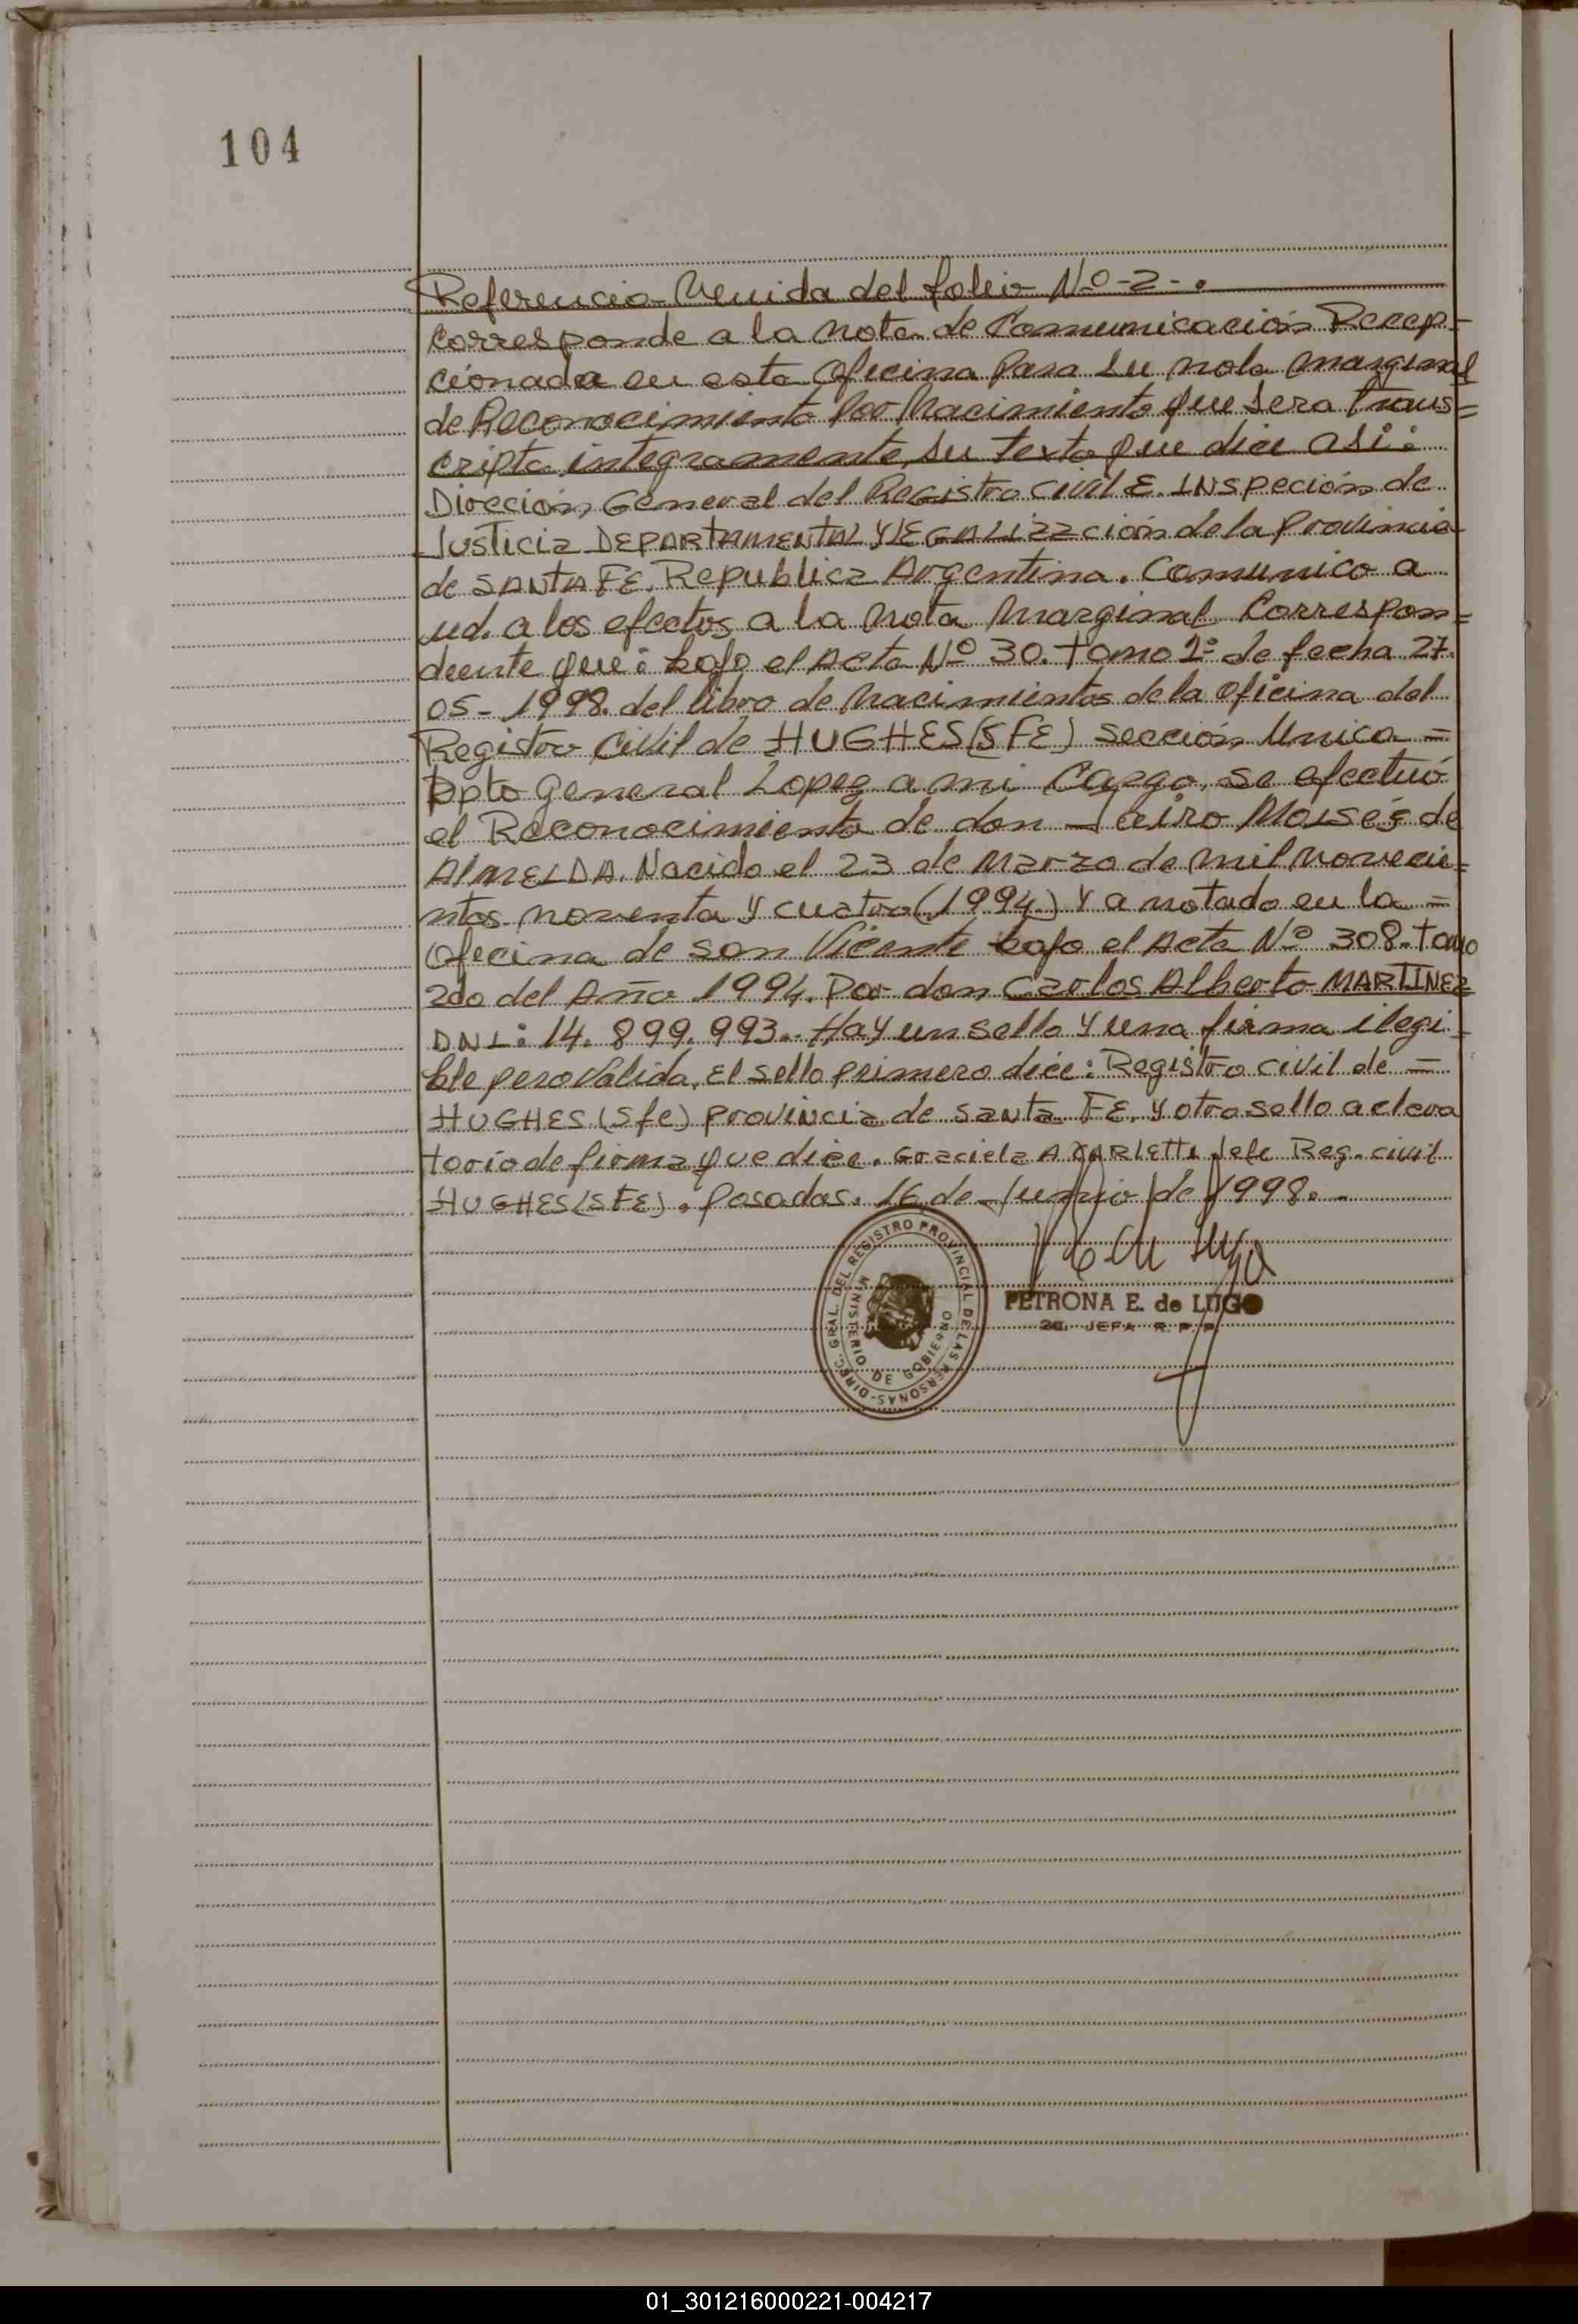 104
Referencia Venida del folio Nº-2-.
Corresponde a la nota de Comunicación Recep-
cionada en esta Oficina para su nota marginal
de Reconocimiento por Nacimiento que sera trans=
cripta integramente, su texto que dice asi:
Direción General del Registro Civil E. INspeción de
Justicia DEPARTAMENTAL Y LEGALIzación de la Provincia
de SANTA FE. Republica Argentina. Comunico a
ud. a los efectos a la nota Marginal Correspon=
diente que: bajo el Acta Nº 30. Tomo 1º de fecha 27.
05-1998. del libro de Nacimientos de la Oficina del
Registro Civil de HUGHES (SFE) Sección Unica =
Dpto General Lopez a mi Cargo, se efectuó
el Reconocimiento de don Jairo Moisés de
AlMEIDA. Nacido el 23 de Marzo de mil novecie=
ntos noventa y cuatro (1994) Y anotado en la =
Oficina de San Vicente bajo el Acta Nº 308. Tomo
2do del Año 1994. Por don Carlos Alberto MARTINEZ
DNI: 14.899.993.. Hay un sello y una firma ilegi=
ble pero Valida. El sello primero dice: Registro Civil de =
HUGHES (Sfe) Provincia de Santa FE. y otro sello aclara
torio de firma que dice. Graciela A. Jefe Reg. civil
HUGHES (SFE). Posadas. 16 de Junio de 1998.-
DIREC. GRAL. DEL REGISTRO PROVINCIAL DE LAS PERSONAS-
MINISTERIO DE GOBIERNO
PETRONA E. de LUGO
2a. JEFA R. P. P.
01_301216000221-004217